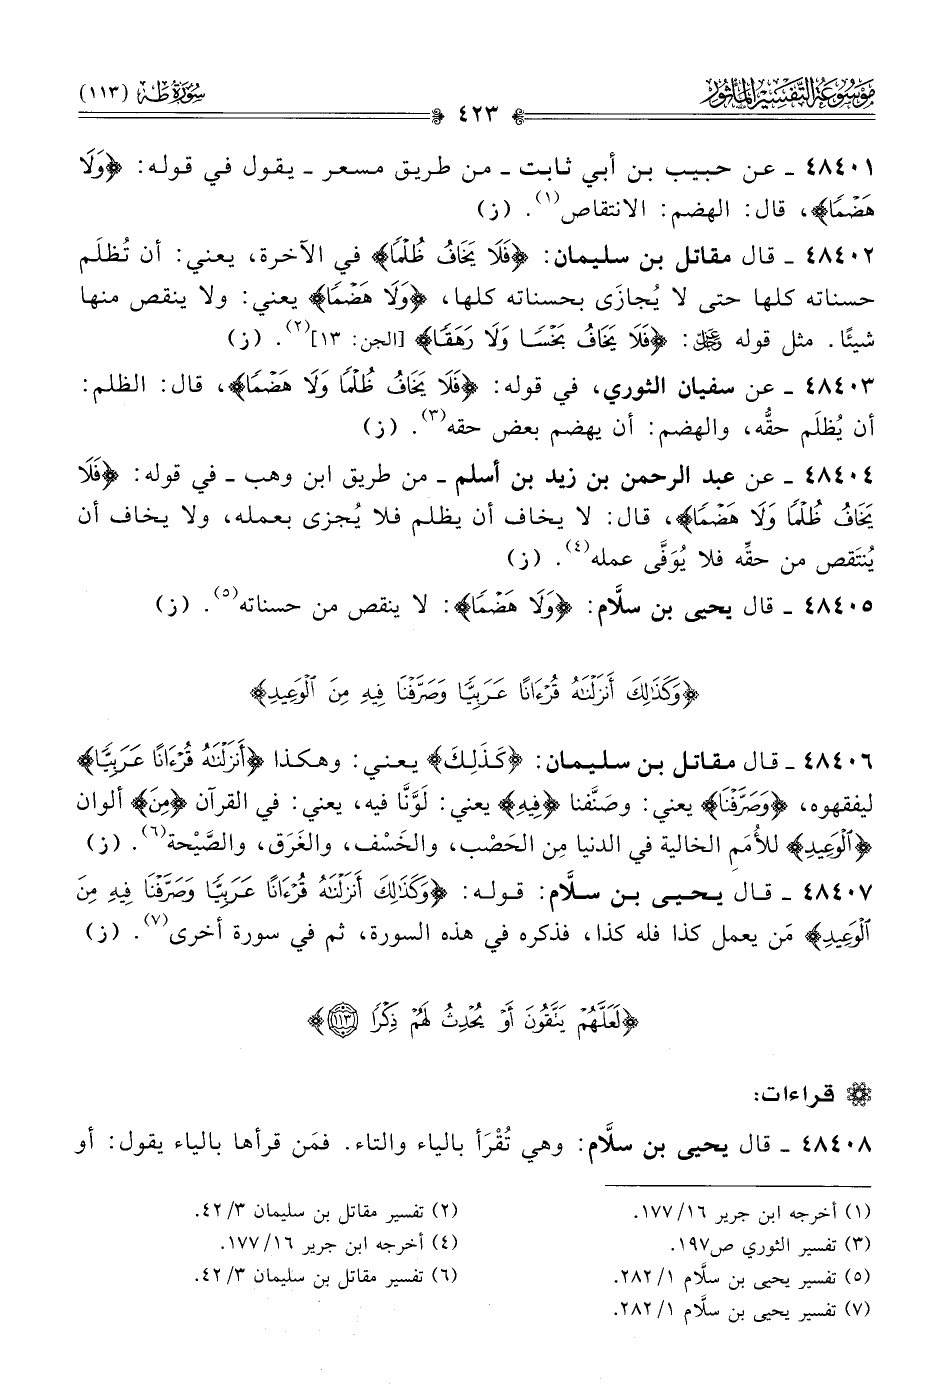 مَوْسُوعَةُ التَّفْسِيرِ المَأْثُورِ
٤٢٣
سُورَةُ طٰهٰ (١١٣)
٤٨٤٠١ ـ عن حبيب بن أبي ثابت ـ من طريق مسعر ـ يقول في قوله: ﴿وَلَا
هَضْمًا﴾، قال: الهضم: الانتقاص(١). (ز)
٤٨٤٠٢ ـ قال مقاتل بن سليمان: ﴿فَلَا يَخَافُ ظُلْمًا﴾ في الآخرة، يعني: أن تُظلَم
حسناته كلها حتى لا يُجازَى بحسناته كلها، ﴿وَلَا هَضْمًا﴾ يعني: ولا ينقص منها
شيئًا. مثل قوله ﷿: ﴿فَلَا يَخَافُ بَخْسًا وَلَا رَهَقًا﴾ [الجن: ١٣](٢). (ز)
٤٨٤٠٣ ـ عن سفيان الثوري، في قوله: ﴿فَلَا يَخَافُ ظُلْمًا وَلَا هَضْمًا﴾، قال: الظلم:
أن يُظلَم حقُّه، والهضم: أن يهضم بعض حقه(٣). (ز)
٤٨٤٠٤ ـ عن عبد الرحمن بن زيد بن أسلم ـ من طريق ابن وهب ـ في قوله: ﴿فَلَا
يَخَافُ ظُلْمًا وَلَا هَضْمًا﴾، قال: لا يخاف أن يظلم فلا يُجزى بعمله، ولا يخاف أن
يُنتَقص من حقِّه فلا يُوَفَّى عمله(٤). (ز)
٤٨٤٠٥ ـ قال يحيى بن سلَّام: ﴿وَلَا هَضْمًا﴾: لا ينقص من حسناته(٥). (ز)
﴿وَكَذَٰلِكَ أَنزَلْنَٰهُ قُرْءَانًا عَرَبِيًّا وَصَرَّفْنَا فِيهِ مِنَ ٱلْوَعِيدِ﴾
٤٨٤٠٦ ـ قال مقاتل بن سليمان: ﴿كَذَٰلِكَ﴾ يعني: وهكذا ﴿أَنزَلْنَٰهُ قُرْءَانًا عَرَبِيًّا﴾
ليفقهوه، ﴿وَصَرَّفْنَا﴾ يعني: وصَنَّفنا ﴿فِيهِ﴾ يعني: لَوَّنَّا فيه، يعني: في القرآن ﴿مِنَ﴾ ألوان
﴿ٱلْوَعِيدِ﴾ للأُمَمِ الخالية في الدنيا مِن الحَصْب، والخَسْف، والغَرَق، والصَّيْحة(٦). (ز)
٤٨٤٠٧ ـ قال يحيى بن سلَّام: قوله: ﴿وَكَذَٰلِكَ أَنزَلْنَٰهُ قُرْءَانًا عَرَبِيًّا وَصَرَّفْنَا فِيهِ مِنَ
ٱلْوَعِيدِ﴾ مَن يعمل كذا فله كذا، فذكره في هذه السورة، ثم في سورة أخرى(٧). (ز)
﴿لَعَلَّهُمْ يَتَّقُونَ أَوْ يُحْدِثُ لَهُمْ ذِكْرًا ١١٣﴾
قراءات:
٤٨٤٠٨ ـ قال يحيى بن سلَّام: وهي تُقْرَأ بالياء والتاء. فمَن قرأها بالياء يقول: أو
(١) أخرجه ابن جرير ١٦/ ١٧٧.
(٢) تفسير مقاتل بن سليمان ٣/ ٤٢.
(٣) تفسير الثوري ص١٩٧.
(٤) أخرجه ابن جرير ١٦/ ١٧٧.
(٥) تفسير يحيى بن سلَّام ١/ ٢٨٢.
(٦) تفسير مقاتل بن سليمان ٣/ ٤٢.
(٧) تفسير يحيى بن سلَّام ١/ ٢٨٢.